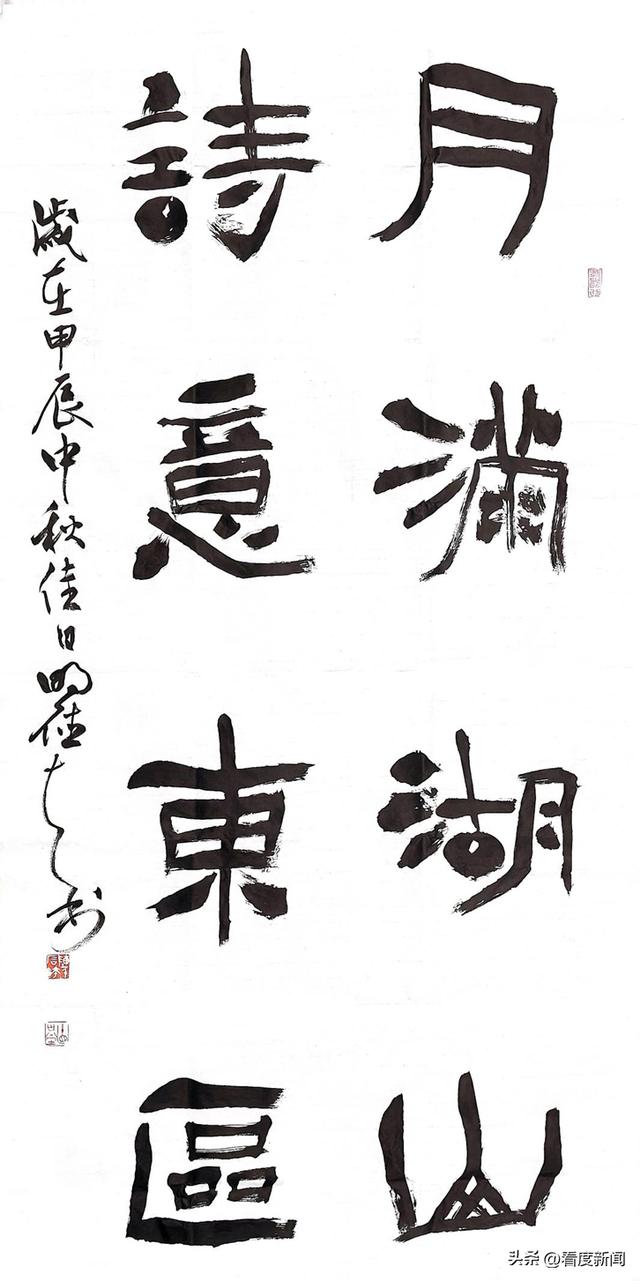 月滿湖山
詩意東區
歲在甲辰中秋佳日
头条 @看度新闻